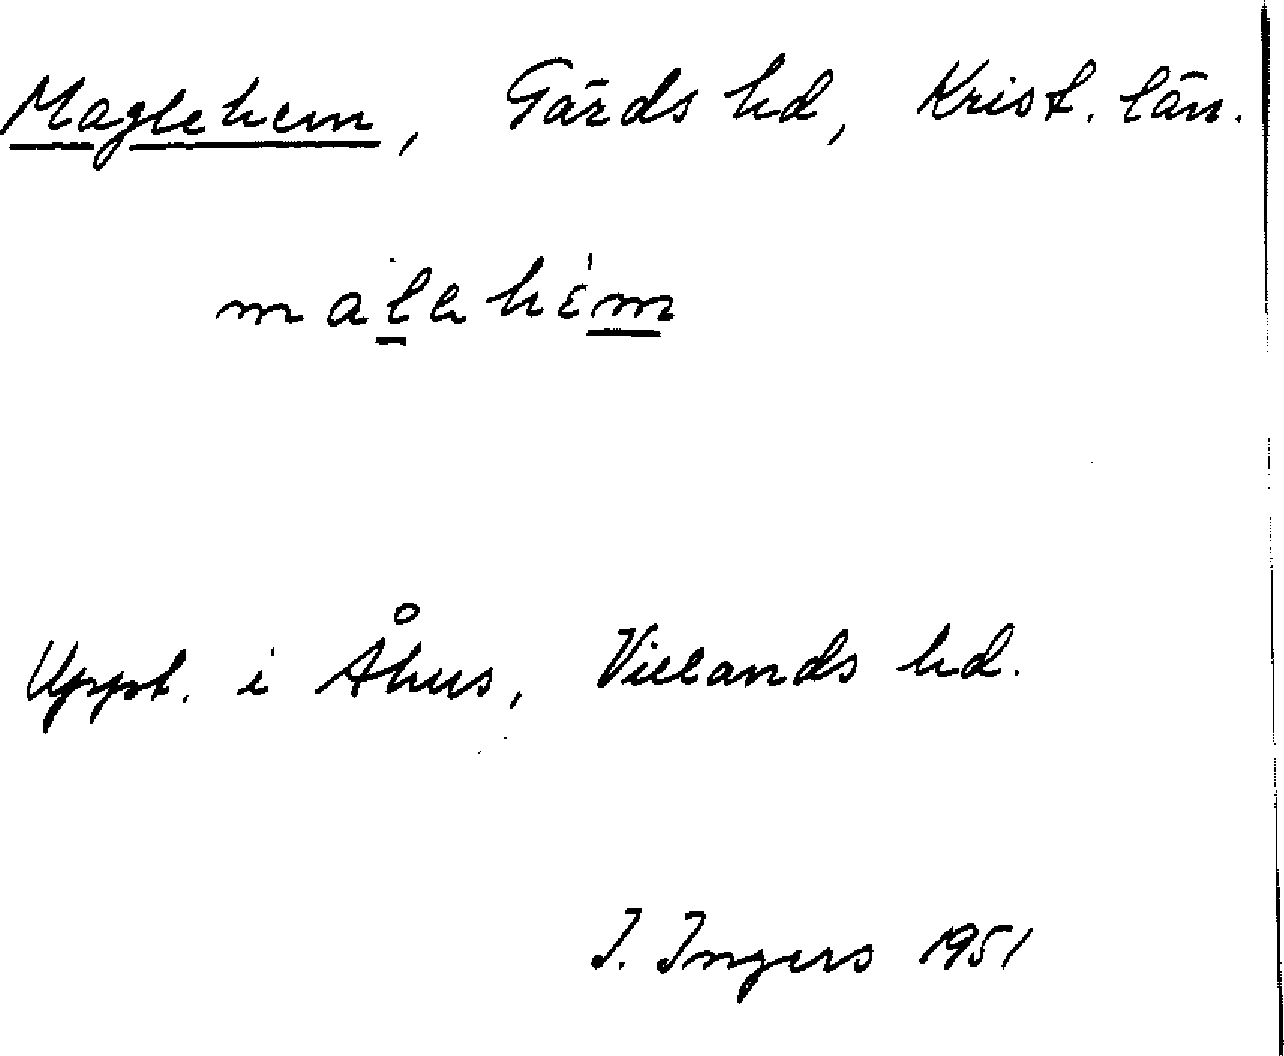 Maglehem, Gärds hd, Krist. län.
malahèm
Uppt. i Åhus, Villands hd.
I. Ingers 1951